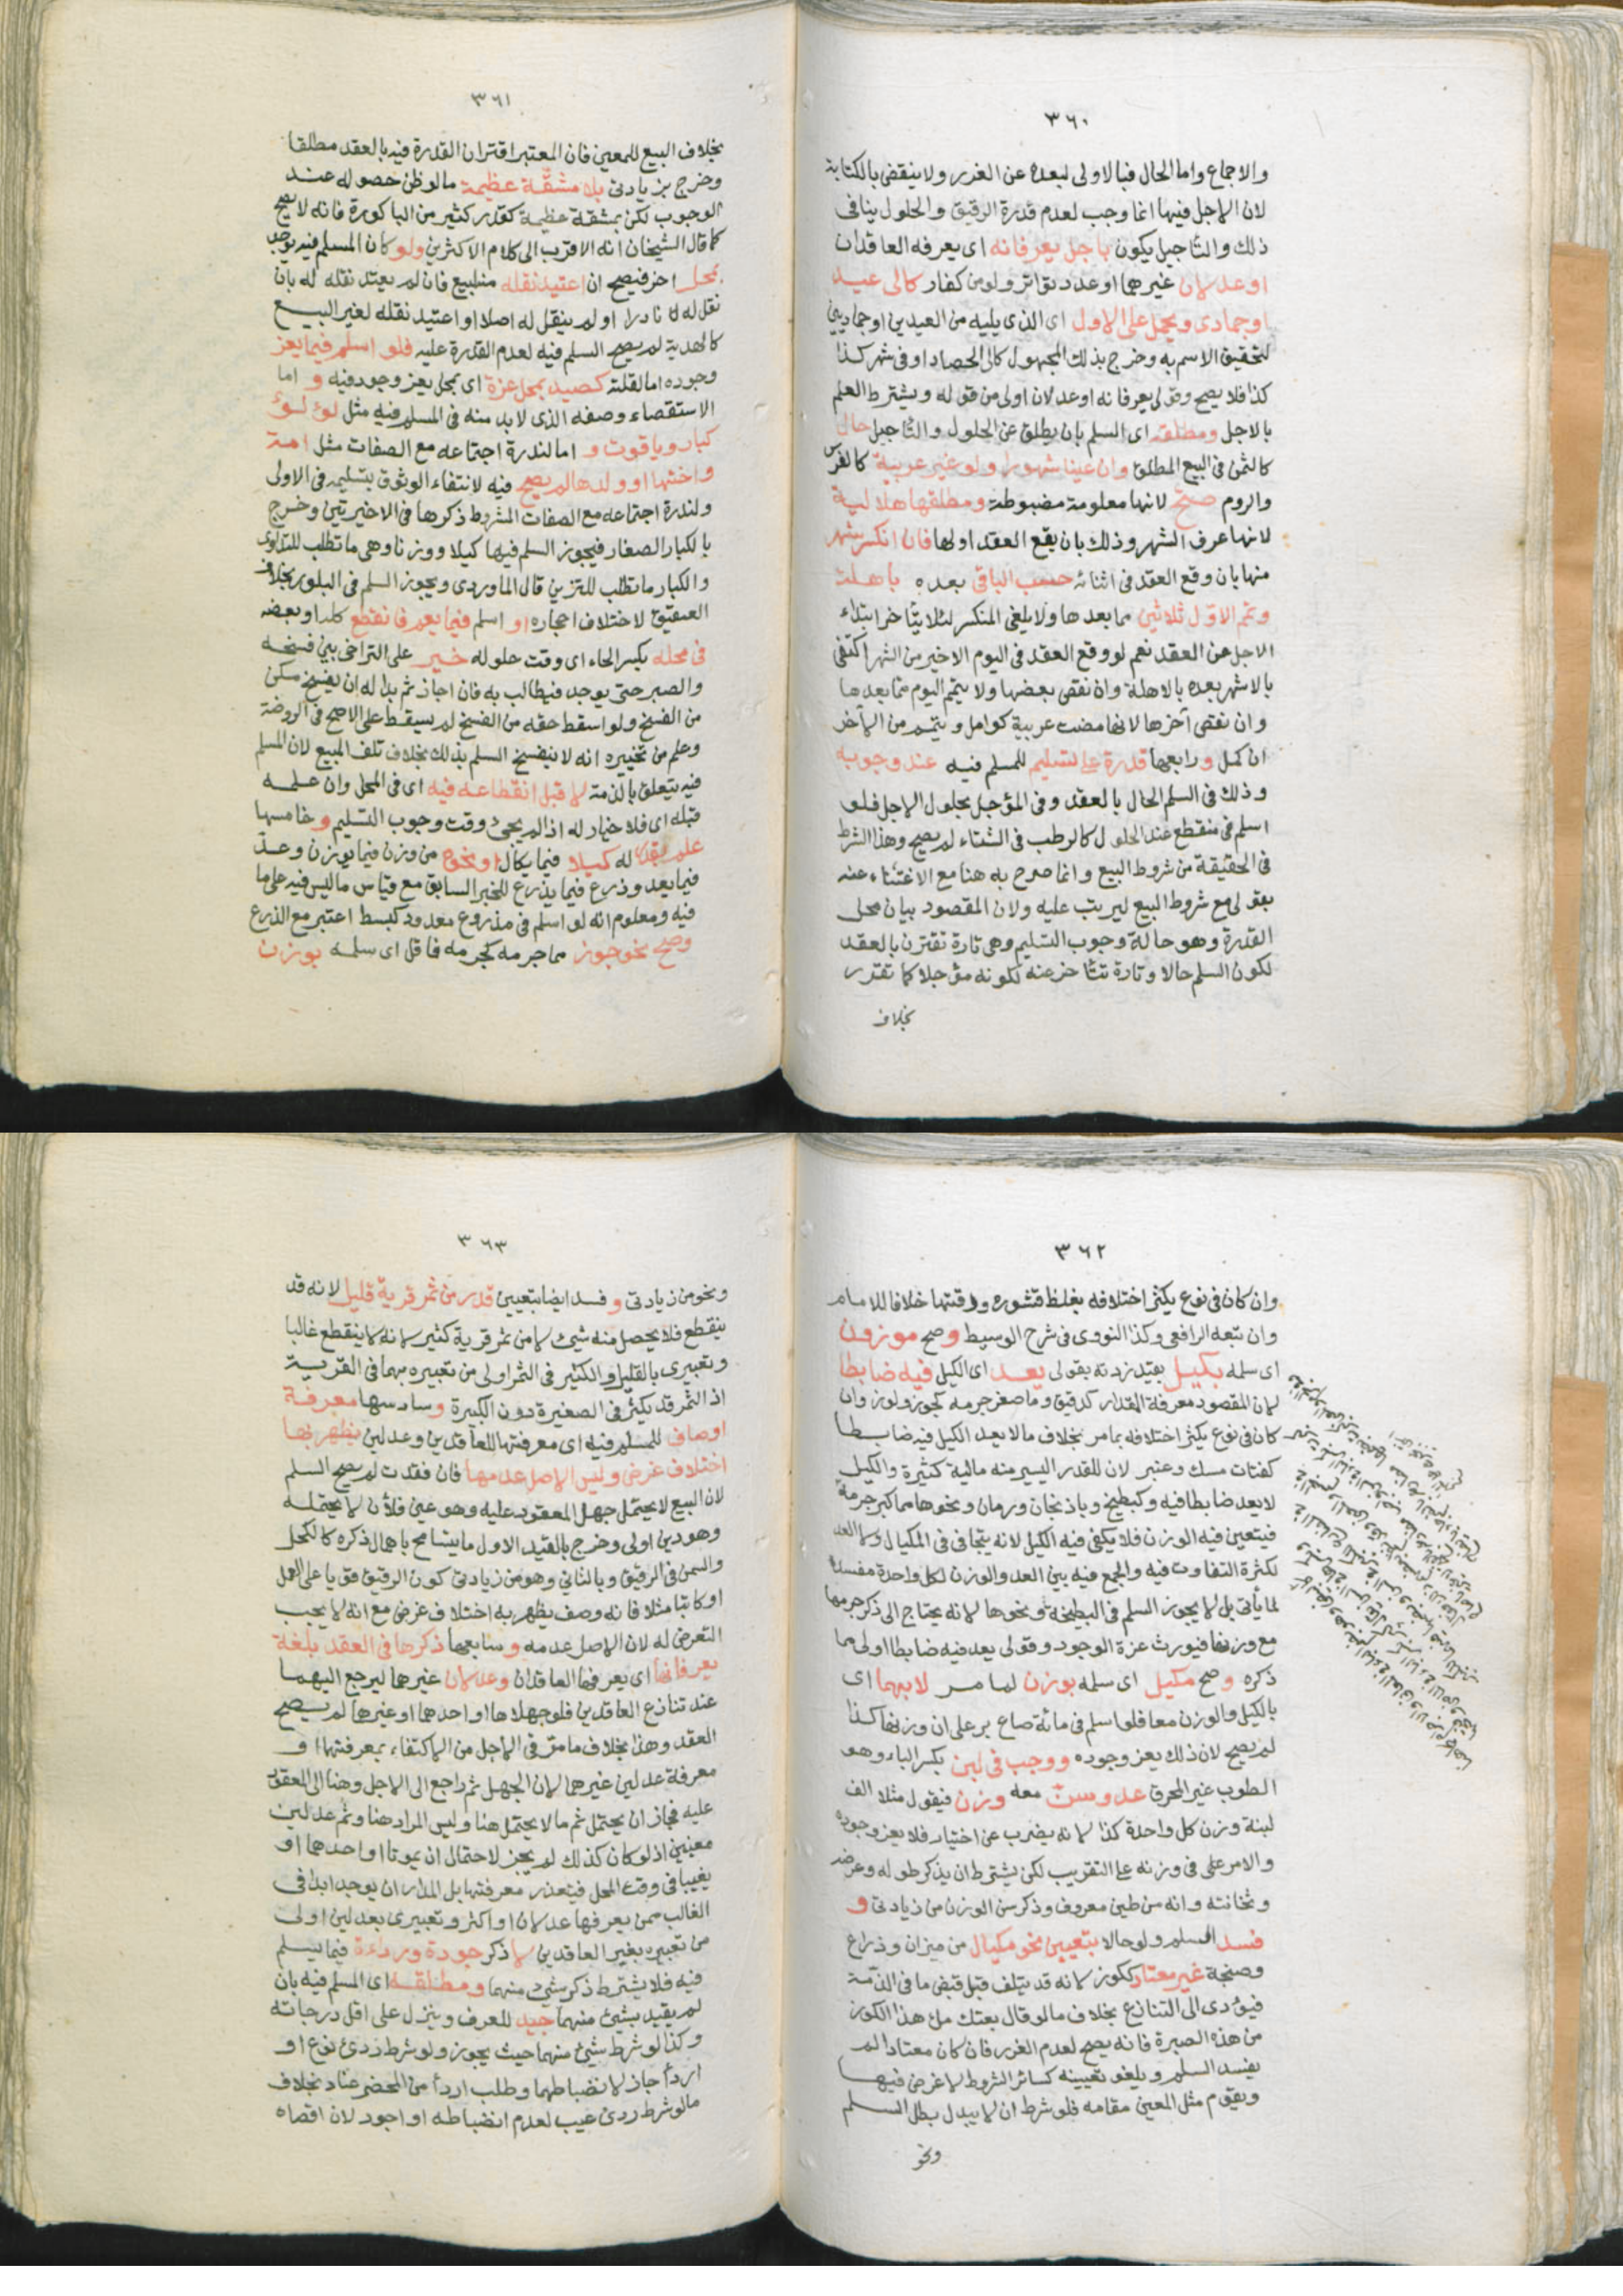 ٣٦٠
والاجماع واما الحال فبالاولى لبعده عن الغرر ولا ينقض بالكتابة
لان الاجل فيها انما وجب لعدم قدرة الرقيق والحلول ينافى
ذلك والتأجيل يكون باجل يعرفانه اى يعرفه العاقدان
او عدلان غيرهما او عدد تواتر ولو من كفار كالى عيد
او جمادى ويحمل على الاول اى الذى يليه من العيدين او جماديين
لتحقيق الاسم به وخرج بذلك المجهول كالى الحصاد او فى شهر كذا
كذا فلا يصح وقولى يعرفانه او عدلان اولى من قوله ويشترط العلم
بالاجل ومطلقه اى السلم بان يطلق عن الحلول والتأجيل حال
كالثمن فى البيع المطلق وان عينا شهورا ولو غير عربية كالفرس
والروم صح لانها معلومة مضبوطة ومطلقها هلالية
لانها عرف الشهر وذلك بان يقع العقد اولها فان انكسر شهر
منها بان وقع العقد فى اثنائه حسب الباقى بعده باهلة
وتمم الاول ثلاثين مما بعدها ولا يلغى المنكسر لئلا يتأخر ابتداء
الاجل عن العقد نعم لو وقع العقد فى اليوم الاخير من الشهر اكتفى
بالاشهر بعده بالاهلة وان نقص بعضها ولا يتمم اليوم مما بعدها
وان نقص آخرها لانها مضت عربية كوامل ويتمم من الاخر
ان كمل و رابعها قدرة على تسليم للمسلم فيه عند وجوبه
وذلك فى السلم الحال بالعقد وفى المؤجل بحلول الاجل فلو
اسلم فى منقطع عند الحلول كالرطب فى الشتاء لم يصح وهذا الشرط
فى الحقيقة من شروط البيع وانما صرح به هنا مع الاغتناء عنه
بقولى مع شروط البيع ليرتب عليه ولان المقصود بيان محل
القدرة وهو حالة وجوب التسليم وهى تارة تقترن بالعقد
لكون السلم حالا وتارة تتأخر عنه لكونه مؤجلا كما تقرر
بخلاف
٣٦١
بخلاف البيع للمعين فان المعتبر اقتران القدرة فيه بالعقد مطلقا
وخرج بزيادتى بلا مشقة عظيمة ما لو ظن حصوله عند
الوجوب لكن بمشقة عظيمة كقدر كثير من الباكورة فانه لا يصح
كما قال الشيخان انه الاقرب الى كلام الاكثرين ولو كان المسلم فيه يوجد
بمحل اخر فيصح ان اعتيد نقله منه لبيع فان لم يعتد نقله له بان
نقل له نادرا او لم ينقل له اصلا او اعتيد نقله لغير البيع
كالهدية لم يصح السلم فيه لعدم القدرة عليه فلو اسلم فيما يعز
وجوده اما لقلته كصيد بمحل عزة اى بمحل يعز وجوده فيه و اما
الاستقصاء وصفه الذى لا بد منه فى المسلم فيه مثل لؤلؤ
كبار وياقوت و اما لندرة اجتماعه مع الصفات مثل امة
واختها او ولدها لم يصح فيه لانتفاء الوثوق بتسليمه فى الاولى
ولندرة اجتماعه مع الصفات المشروط ذكرها فى الاخيرتين وخرج
بالكبار الصغار فيجوز السلم فيها كيلا ووزنا وهى ما تطلب للتداوى
والكبار ما تطلب للتزين قال الماوردى ويجوز السلم فى البلور بخلاف
العقيق لاختلاف احجاره او اسلم فيما يعم فانقطع كله او بعضه
فى محله بكسر الحاء اى وقت حلوله خير على التراخى بين فسخه
والصبر حتى يوجد فيطالب به فان اجاز ثم بدا له ان يفسخ مكن
من الفسخ ولو اسقط حقه من الفسخ لم يسقط على الاصح فى الروضة
وعلم من تخييره انه لا ينفسخ السلم بذلك بخلاف تلف المبيع لان المسلم
فيه يتعلق بالذمة لا قبل انقطاعه فيه اى فى المحل وان علمه
قبله اى فلا خيار له اذ لم يجئ وقت وجوب التسليم و خامسها
علم بقدر له كيلا فيما يكال او نحوه من وزن فيما يوزن وعد
فيما يعد وذرع فيما يذرع للخبر السابق مع قياس ما ليس فيه على ما
فيه ومعلوم انه لو اسلم فى مذروع معدود كبسط اعتبر مع الذرع
وصح نحو جوز مما جرمه كجرمه فاقل اى سلمه بوزن
٣٦٢
وان كان فى نوع يكثر اختلافه بغلظ قشوره ورقتها خلافا للامام
وان تبعه الرافعى وكذا النووى فى شرح الوسيط وصح موزون
اى سلمه بكيل بقيد زدته بقولى يعد اى الكيل فيه ضابطا
لان المقصود معرفة المقدار كدقيق وما صغر جرمه كجوز ولوز وان
كان فى نوع يكثر اختلافه بما مر بخلاف ما لا يعد الكيل فيه ضابطا
كفتات مسك وعنبر لان للقدر اليسير منه مالية كثيرة والكيل
لا يعد ضابطا فيه وكبطيخ وباذنجان ورمان ونحوها مما كبر جرمه
فيتعين فيه الوزن فلا يكفى فيه الكيل لانه يتجافى فى المكيال ولا العد
لكثرة التفاوت فيه والجمع فيه بين العد والوزن لكل واحدة مفسد
لما يأتى بل لا يجوز السلم فى البطيخة ونحوها لانه يحتاج الى ذكر جرمها
مع وزنها فيورث عزة الوجود وقولى يعد فيه ضابطا اولى مما
ذكره وصح مكيل اى سلمه بوزن لما مر لا بهما اى
بالكيل والوزن معا فلو اسلم فى مائة صاع بر على ان وزنها كذا
لم يصح لان ذلك يعز وجوده ووجب فى لبن بكسر الباء وهو
الطوب غير المحرق عد وسن معه وزن فيقول مثلا الف
لبنة وزن كل واحدة كذا لانه يضرب عن اختيار فلا يعز وجوده
والامر على فى وزنه على التقريب لكن يشترط ان يذكر طوله وعرضه
وثخانته وانه من طين معروف وذكر سن الوزن من زيادتى و
فسد السلم ولو حالا بتعيين نحو مكيال من ميزان وذراع
وصنجة غير معتاد ككوز لانه قد يتلف قبل قبض ما فى الذمة
فيؤدى الى التنازع بخلاف ما لو قال بعتك ملء هذا الكوز
من هذه الصبرة فانه يصح لعدم الغرر فان كان معتادا لم
يفسد السلم ويلغو تعيينه كسائر الشروط لا غرض فيها
ويقوم مثل المعين مقامه فلو شرط ان لا يبدل بطل السلم
ونحو
٣٦٣
ونحو من زيادتى و فسد ايضا بتعيين قدر من ثمر قرية قليل لانه قد
ينقطع فلا يحصل منه شئ لا من ثمر قرية كثير لانه لا ينقطع غالبا
وتعبيرى بالقليل والكثير فى الثمر اولى من تعبيره بهما فى القرية
اذ الثمر قد يكثر فى الصغيرة دون الكبيرة وسادسها معرفة
اوصاف للمسلم فيه اى معرفتها للعاقدين وعدلين يظهر بها
اختلاف غرض وليس الاصل عدمها فان فقدت لم يصح السلم
لان البيع لا يحتمل جهل المعقود عليه وهو عين فلان لا يحتمله
وهو دين اولى وخرج بالقيد الاول ما يتسامح باهمال ذكره كالكحل
والسمن فى الرقيق وبالثانى وهو من زيادتى كون الرقيق قويا على العمل
او كاتبا مثلا فانه وصف يظهر به اختلاف غرض مع انه لا يجب
التعرض له لان الاصل عدمه وسابعها ذكرها فى العقد بلغة
يعرفانها اى يعرفها العاقدان وعدلان غيرهما ليرجع اليهما
عند تنازع العاقدين فلو جهلاها او احدهما او غيرهما لم يصح
العقد وهذا بخلاف ما مر فى الاجل من الاكتفاء بمعرفتهما او
معرفة عدلين غيرهما لان الجهل ثم راجع الى الاجل وهنا الى المعقود
عليه فجاز ان يحتمل ثم ما لا يحتمل هنا وليس المراد هنا وثم عدلين
معينين اذ لو كان كذلك لم يجز لاحتمال ان يموتا او احدهما او
يغيبا فى وقت المحل فيتعذر معرفتها بل المدار ان يوجد ابدا فى
الغالب ممن يعرفها عدلان او اكثر وتعبيرى بعدلين اولى
من تعبيره بغير العاقدين لا ذكر جودة ورداءة فيما يسلم
فيه فلا يشترط ذكر شئ منهما ومطلقه اى المسلم فيه بان
لم يقيد بشئ منهما جيد للعرف وينزل على اقل درجاته
وكذا لو شرط شئ منهما حيث يجوز ولو شرط ردئ نوع او
اردأ جاز لانضباطهما وطلب اردأ من المحضر عناد بخلاف
ما لو شرط ردئ عيب لعدم انضباطه او اجود لان اقصاه